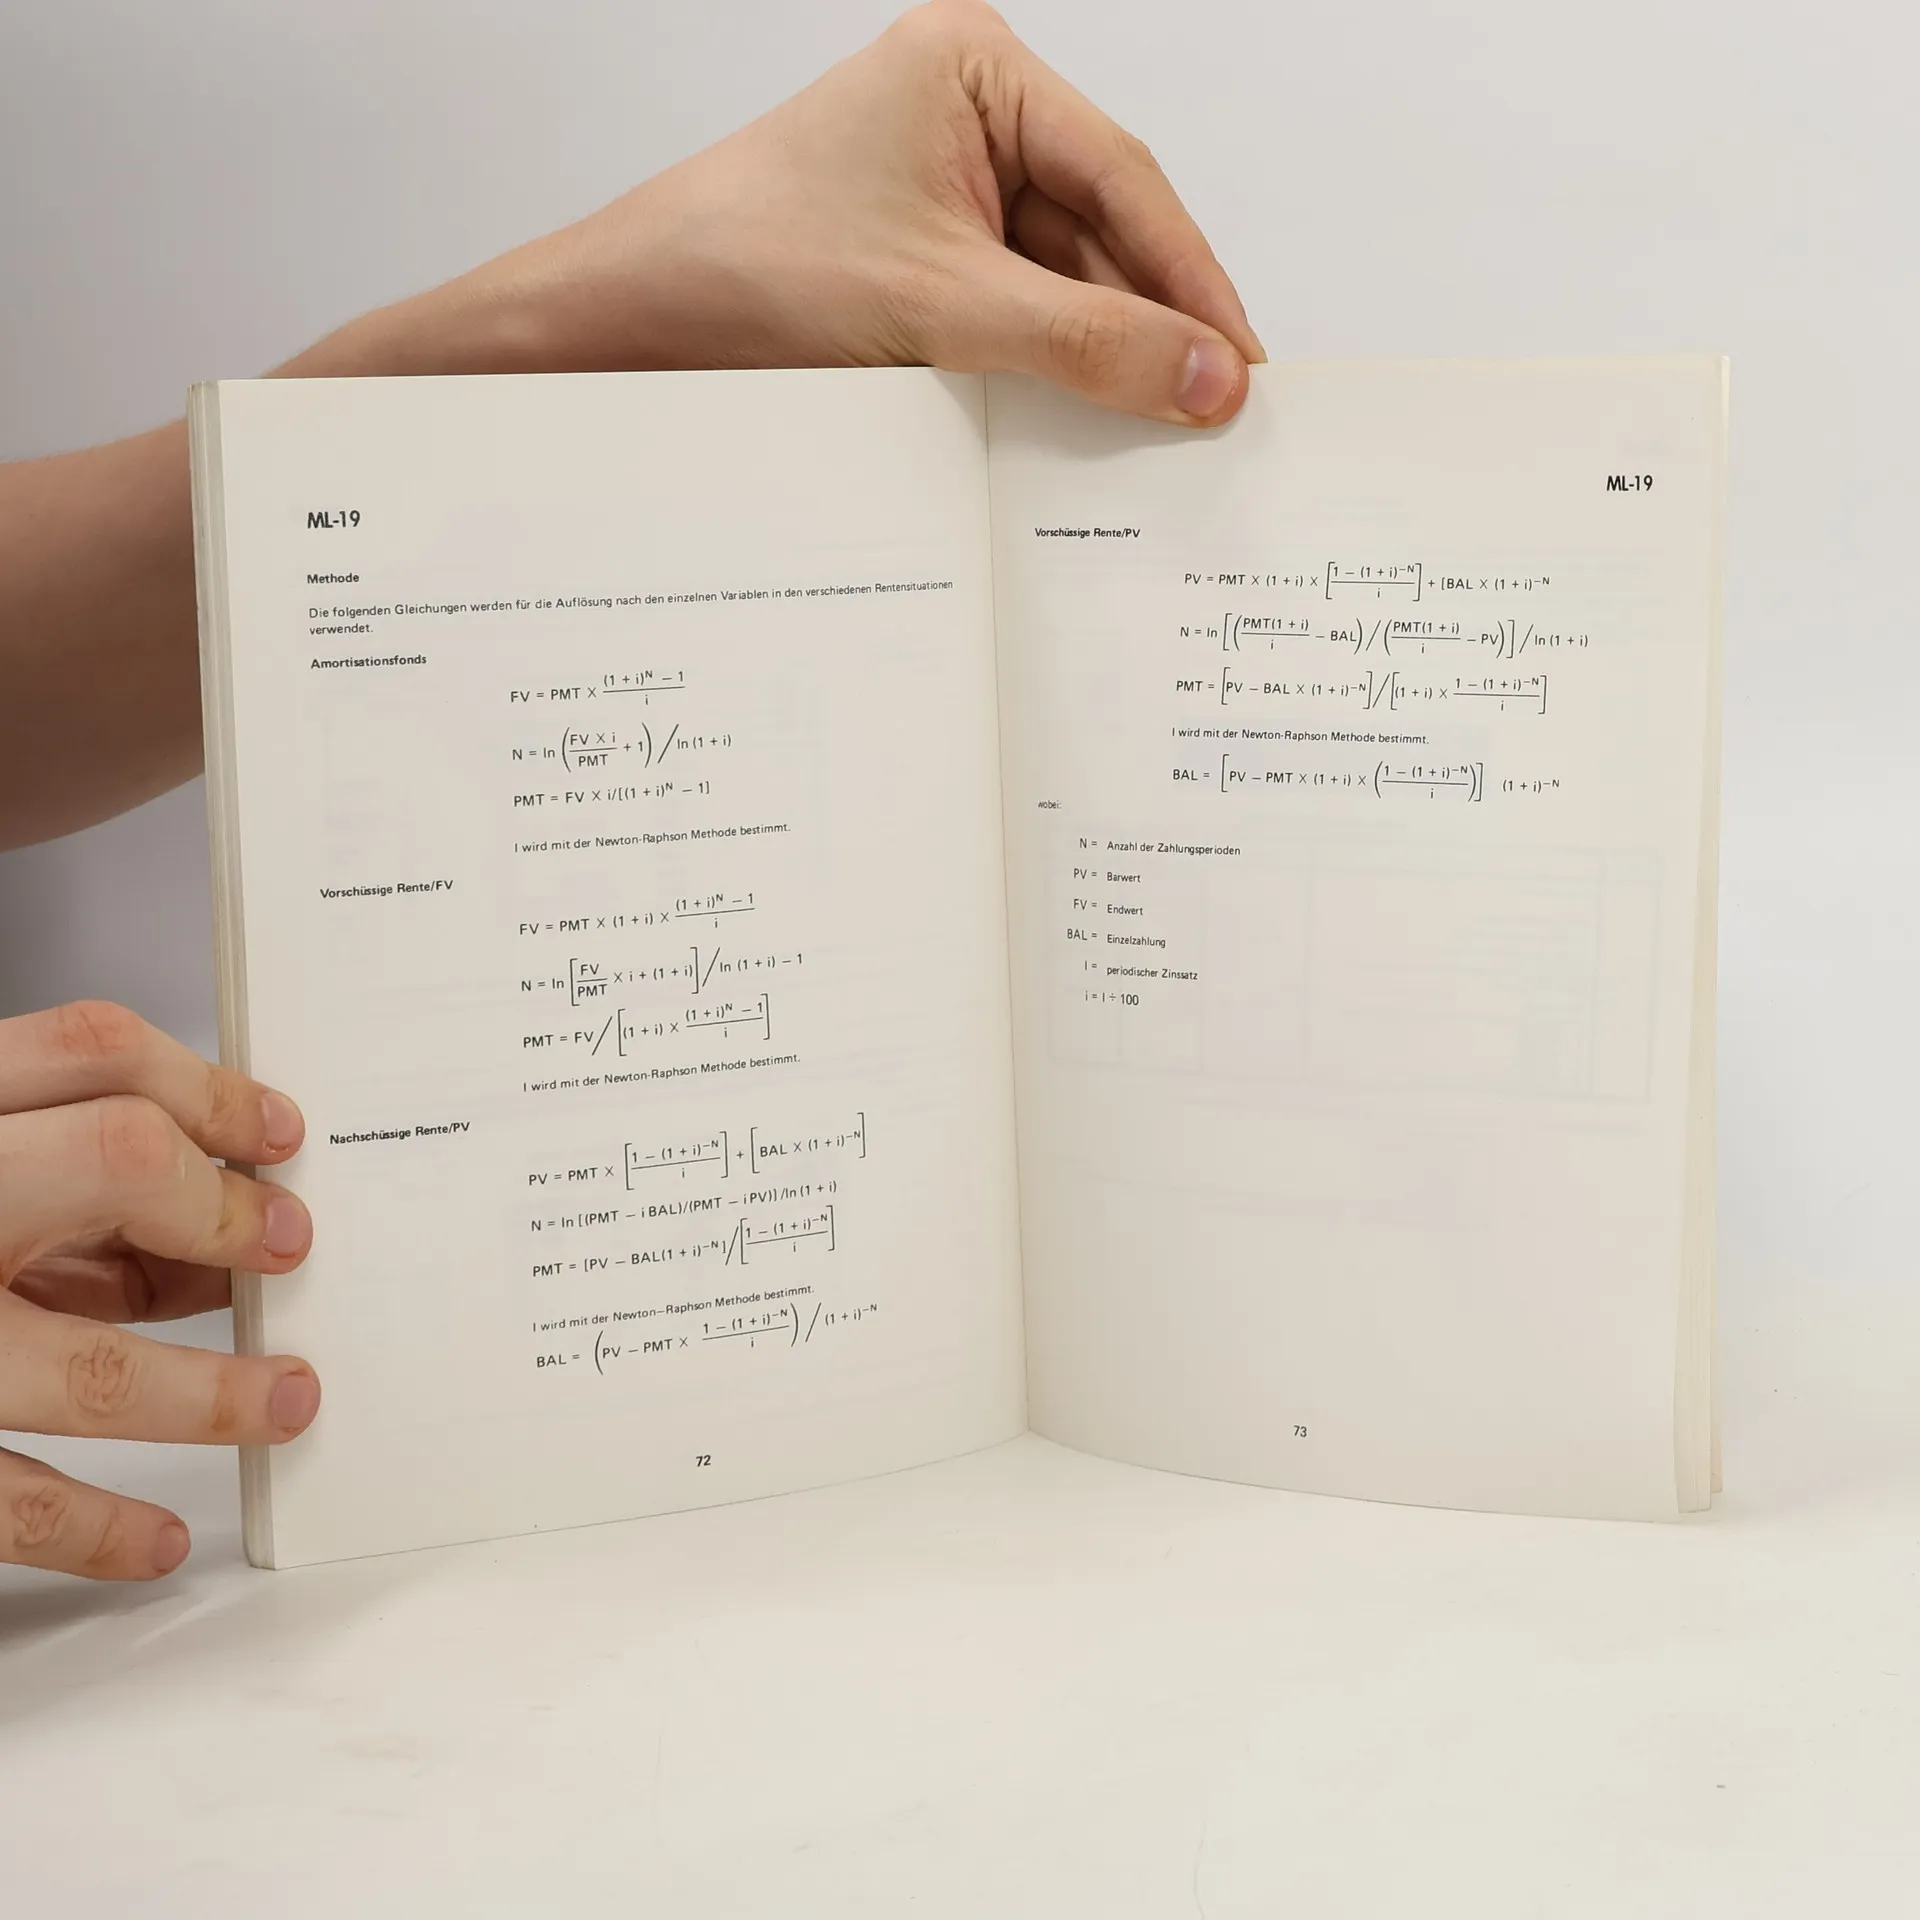 ML-19
Methode
Die folgenden Gleichungen werden für die Auflösung nach den einzelnen Variablen in den verschiedenen Rentensituationen
verwendet.
Amortisationsfonds
FV = PMT × \frac{(1 + i)^N − 1}{i}
N = ln (\frac{FV × i}{PMT} + 1) / ln (1 + i)
PMT = FV × i/[(1 + i)^N − 1]
I wird mit der Newton-Raphson Methode bestimmt.
Vorschüssige Rente/FV
FV = PMT × (1 + i) × \frac{(1 + i)^N − 1}{i}
N = ln [\frac{FV}{PMT} × i + (1 + i)] / ln (1 + i) − 1
PMT = FV / [(1 + i) × \frac{(1 + i)^N − 1}{i}]
I wird mit der Newton-Raphson Methode bestimmt.
Nachschüssige Rente/PV
PV = PMT × [\frac{1 − (1 + i)^{−N}}{i}] + [BAL × (1 + i)^{−N}]
N = ln [(PMT − i BAL)/(PMT − i PV)] /ln (1 + i)
PMT = [PV − BAL(1 + i)^{−N}] / [\frac{1 − (1 + i)^{−N}}{i}]
I wird mit der Newton−Raphson Methode bestimmt.
BAL = (PV − PMT × \frac{1 − (1 + i)^{−N}}{i}) / (1 + i)^{−N}
72
ML-19
Vorschüssige Rente/PV
PV = PMT × (1 + i) × [\frac{1 − (1 + i)^{−N}}{i}] + [BAL × (1 + i)^{−N}
N = ln [(\frac{PMT(1 + i)}{i} − BAL) / (\frac{PMT(1 + i)}{i} − PV)] / ln (1 + i)
PMT = [PV − BAL × (1 + i)^{−N}] / [(1 + i) × \frac{1 − (1 + i)^{−N}}{i}]
I wird mit der Newton-Raphson Methode bestimmt.
BAL = [PV − PMT × (1 + i) × (\frac{1 − (1 + i)^{−N}}{i})] (1 + i)^{−N}
wobei:
N = Anzahl der Zahlungsperioden
PV = Barwert
FV = Endwert
BAL = Einzelzahlung
I = periodischer Zinssatz
i = I ÷ 100
73